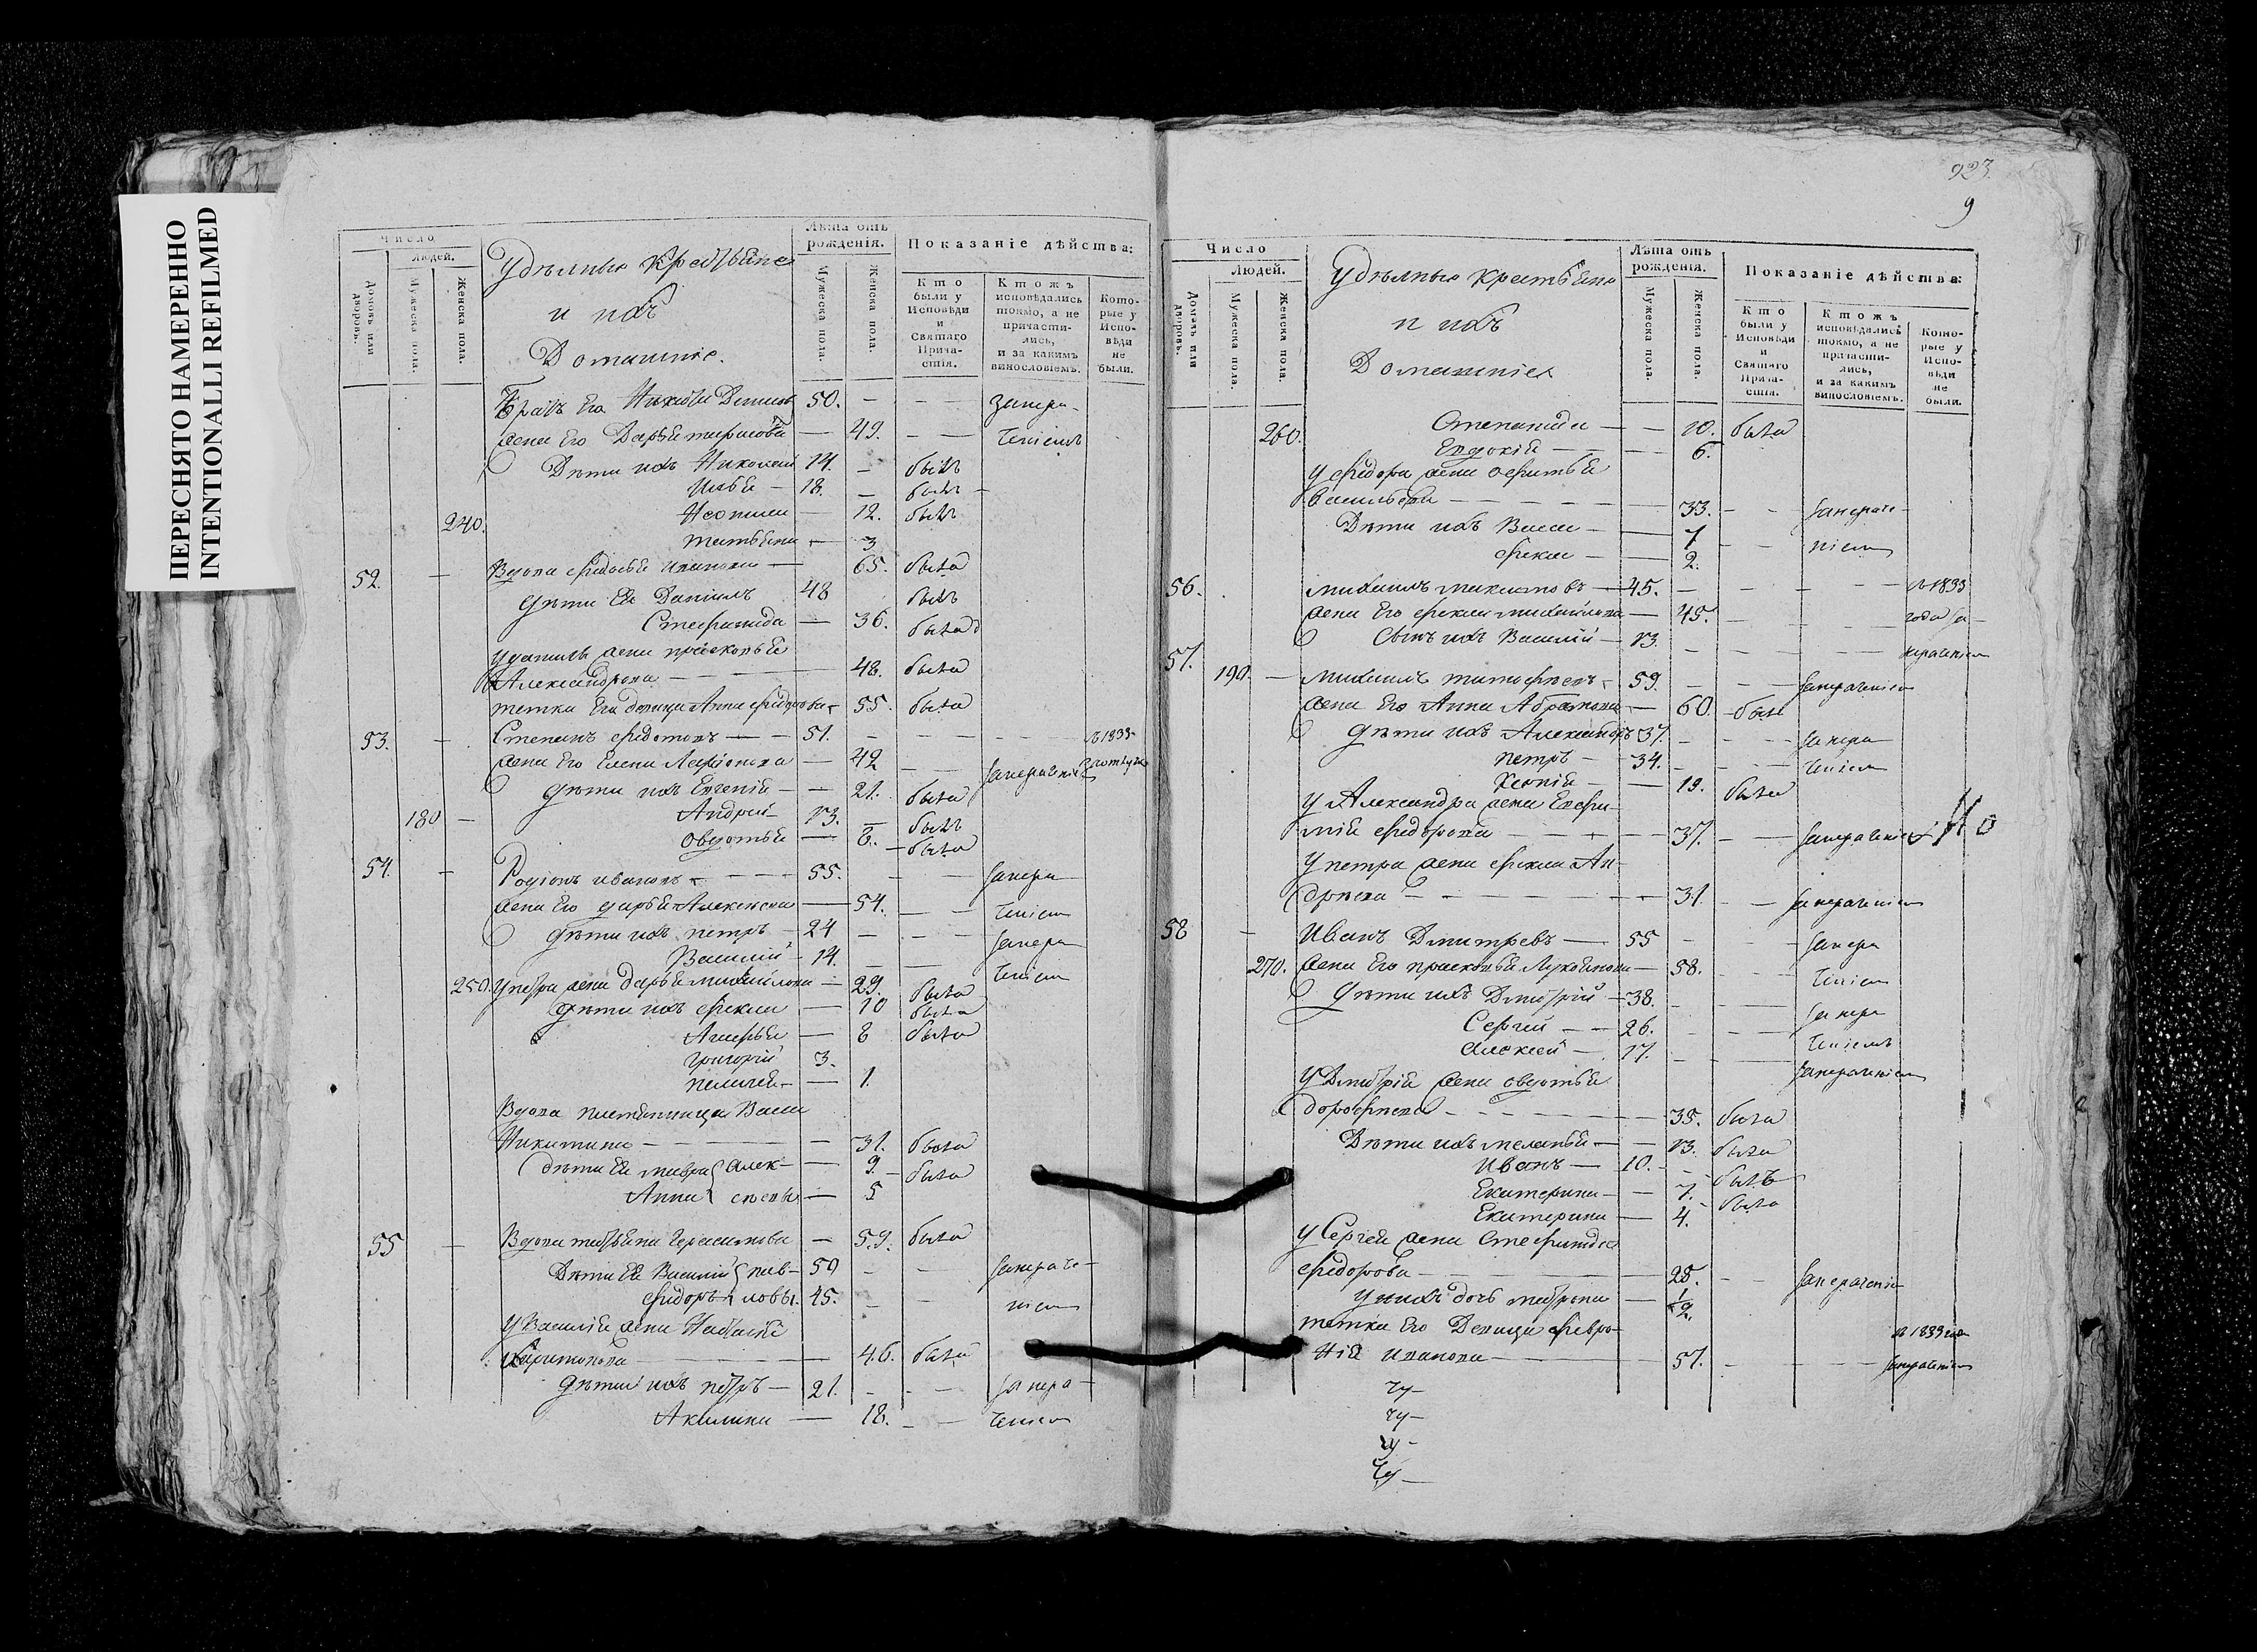 ПЕРЕСНЯТО НАМЕРЕННО
INTENTIONALLI REFILMED
Число
Людей.
Домовъ или дворовъ.
Мужеска пола.
Женска пола.
Удѣлные крестьяне
и ихъ
Домашніе.
Лѣта отъ рожденія.
Мужеска пола.
Женска пола.
Показаніе дѣйства:
Кто были у Исповѣди и Святаго Причастія.
Ктожъ исповѣдались токмо, а не причастились, и за какимъ винословіемъ.
Которые у Исповѣди не были.
Братъ Его 50. — — — запера-
жена Его Дарья — 49. — — ченіемъ
Дѣти ихъ Николай 14. — былъ
18. — былъ
— 12. былъ
240. Татьяна — 3
52. — Вдова Федосья Иванова — 65. была
дѣти Ея Даніилъ 48 былъ
Стефанида — 36. была
У Данила жена Прасковья
Александрова — 48. была
тетка Его девица Анна Федорова — 55. была
53. — Степанъ Федотовъ — 51. — — — въ 1833
жена Его Елена — 42 — — заперачніемъ
дѣти ихъ Евгенія — 21. была
180 — Андрей — 13. — былъ
Овдотья — 8. — была
54. — Родіонъ Ивановъ — 55. — — запера
жена Его Дарья Алексеева — 54. — — ченіем
дѣти ихъ Петръ — 24 — — — запера
Василій — 14. — — ченіем
250. У Петра жена Дарья Михайлова — 29. была
дѣти ихъ Фекла — 10 была
— 8 была
Григорій 3.
Пелагея — 1.
Вдова Васса
Никитина — 31. была
дѣти Ея Мавра Алек- — 9. — была
Анна сеевы — 5
55 — Вдова Татьяна Герасимова — 59. была
Дѣти Ея Василій Пав- 50 — — запераче-
Федоръ ловы. 45. — — ніем
У Василія жена Наталья
Харитонова — 46. была
дѣти ихъ Петръ — 21. — — запера-
Акилина — 18. — — ченіем
923.
9
Число
Людей.
Домовъ или дворовъ.
Мужеска пола.
Женска пола.
Удѣлные крестьяне
и ихъ
Домашніе
Лѣта отъ рожденія.
Мужеска пола.
Женска пола.
Показаніе дѣйства:
Кто были у Исповѣди и Святаго Причастія.
Ктожъ исповѣдались токмо, а не причастились, и за какимъ винословіемъ.
Которые у Исповѣди не были.
260. Степанида — — 10. была
Евдокія — — 6.
У Федора жена
Васильева — 33. — — запераче-
Дѣти ихъ Васса — 7 — — ніем
Фекла — 2.
56. Михаилъ — 45. — — — въ 1833
жена Его Фекла Михайлова — 45. — — года за-
Сынъ ихъ Василій — 13. — — — перачніем
57. 190. — Михаилъ Тимофеевъ — 59. — — заперачніем
жена Его Анна — 60. — была
дѣти ихъ Александръ 37. — — запера
Петръ — 34. — — ченіем
Ксенія — 19. была
У Александра жена Ефи-
мія Федорова — 37. — — заперачніем
У Петра жена Фекла Ан-
дреева — 31. — — заперачніем
58 — Иванъ Дмитревъ — 55 — — запера
270. жена Его Прасковья — 58. — — ченіем
Дѣти ихъ Дмитрій — 38. — — запера
Сергей — 26. — — ченіемъ
Алексей — 17. — — заперачніем
У Дмитрія жена Овдотья
Дорофеева — 35. была
Дѣти ихъ Меланья — 13. была
Иванъ — 10. — былъ
Екатерина — 7. была
Екатерина — 4.
У Сергея жена Стефанида
Федорова — 28. — — заперачніем
У нихъ дочь Матрона — 1/2.
тетка Его Девица Февро- въ 1833 года
нія Иванова — 57. — — — заперачніем